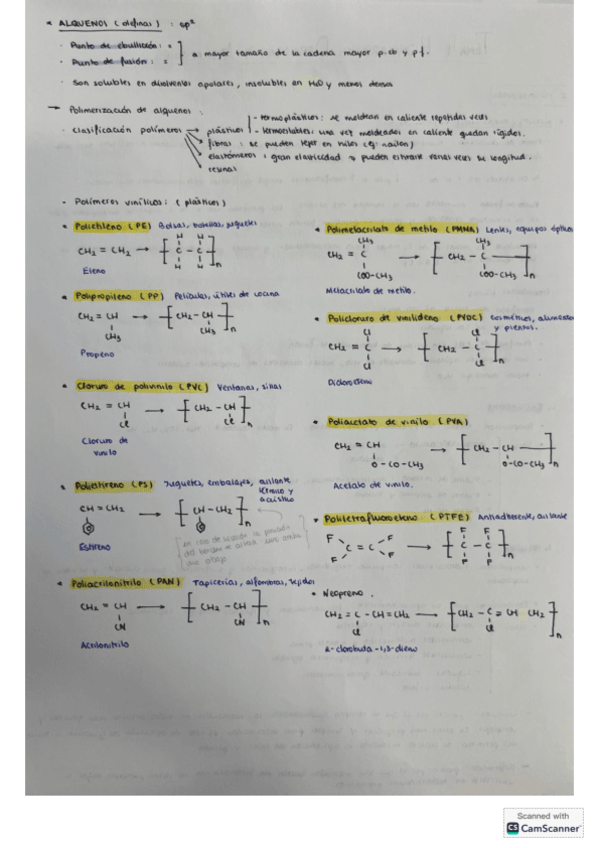 * ALQUENOS (olefinas) : sp²
· Punto de ebullición : =
· Punto de fusión : =
a mayor tamaño de la cadena mayor p.eb y pf.
· Son solubles en disolventes apolares, insolubles en H₂O y menos densos
→ Polimerización de alquenos :
· clasificación polímeros → plásticos
- termoplásticos: se moldean en caliente repetidas veces
- termoestables: una vez moldeados en caliente quedan rígidos.
fibras : se pueden tejer en hilos (ej: nailon)
elastómeros : gran elasticidad → pueden estirarse varias veces su longitud.
resinas
· Polímeros vinílicos: (plásticos)
• Polietileno (PE) Bolsas, botellas, juguetes
CH₂ = CH₂ → [ C - C ]n
H H
H H
Eteno
• Polipropileno (PP) Películas, útiles de cocina
CH₂ = CH → [ CH₂ - CH ]n
CH₃ CH₃
Propeno
• Cloruro de polivinilo (PVC) Ventanas, sillas
CH₂ = CH → [ CH₂ - CH ]n
Cl Cl
Cloruro de
vinilo
• Poliestireno (PS) Juguetes, embalajes, aislante
térmico y
acústico
CH = CH₂ → [ CH - CH₂ ]n
Estireno
• Poliacrilonitrilo (PAN) Tapicerías, alfombras, tejidos
CH₂ = CH → [ CH₂ - CH ]n
CN CN
Acrilonitrilo
• Polimetacrilato de metilo (PMMA) Lentes, equipos óptico
CH₃ CH₃
CH₂ = C → [ CH₂ - C ]n
COO-CH₃ COO-CH₃
Metacrilato de metilo.
• Policloruro de vinilideno (PVDC) cosméticos, alimentos
y piensos.
Cl Cl
CH₂ = C → [ CH₂ - C ]n
Cl Cl
Dicloroeteno
• Poliacetato de vinilo (PVA)
CH₂ = CH → [ CH₂ - CH ]n
O-CO-CH₃ O-CO-CH₃
Acetato de vinilo.
• Politetrafluoroeteno (PTFE) Antiadherente, aislante
F F F F
C = C → [ C - C ]n
F F F F
• Neopreno.
CH₂ = C - CH = CH₂ → [ CH₂ - C = CH CH₂ ]n
Cl Cl
2-clorobuta-1,3-dieno
Scanned with
CS CamScanner